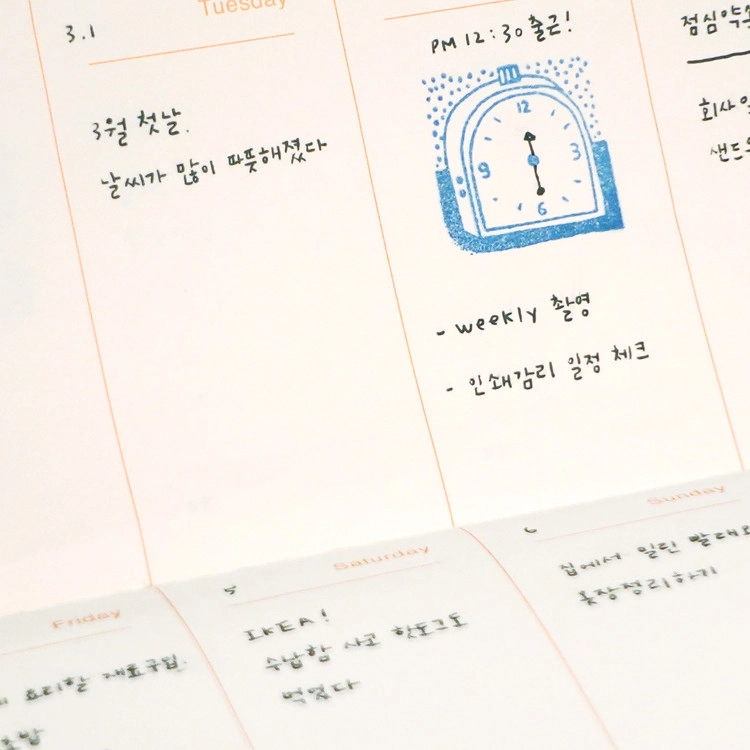 Tuesday
3.1
3월 첫날.
날씨가 많이 따뜻해졌다
PM 12:30 출근!
12
3
6
9
- weekly 촬영
- 인쇄감리 일정 체크
점심약속
회사
Friday
요리할 재료구입.
Saturday
5
IKEA!
수납함 사고 핫도그도
먹었다
Sunday
6
집에서 밀린 빨래와
옷장정리하기